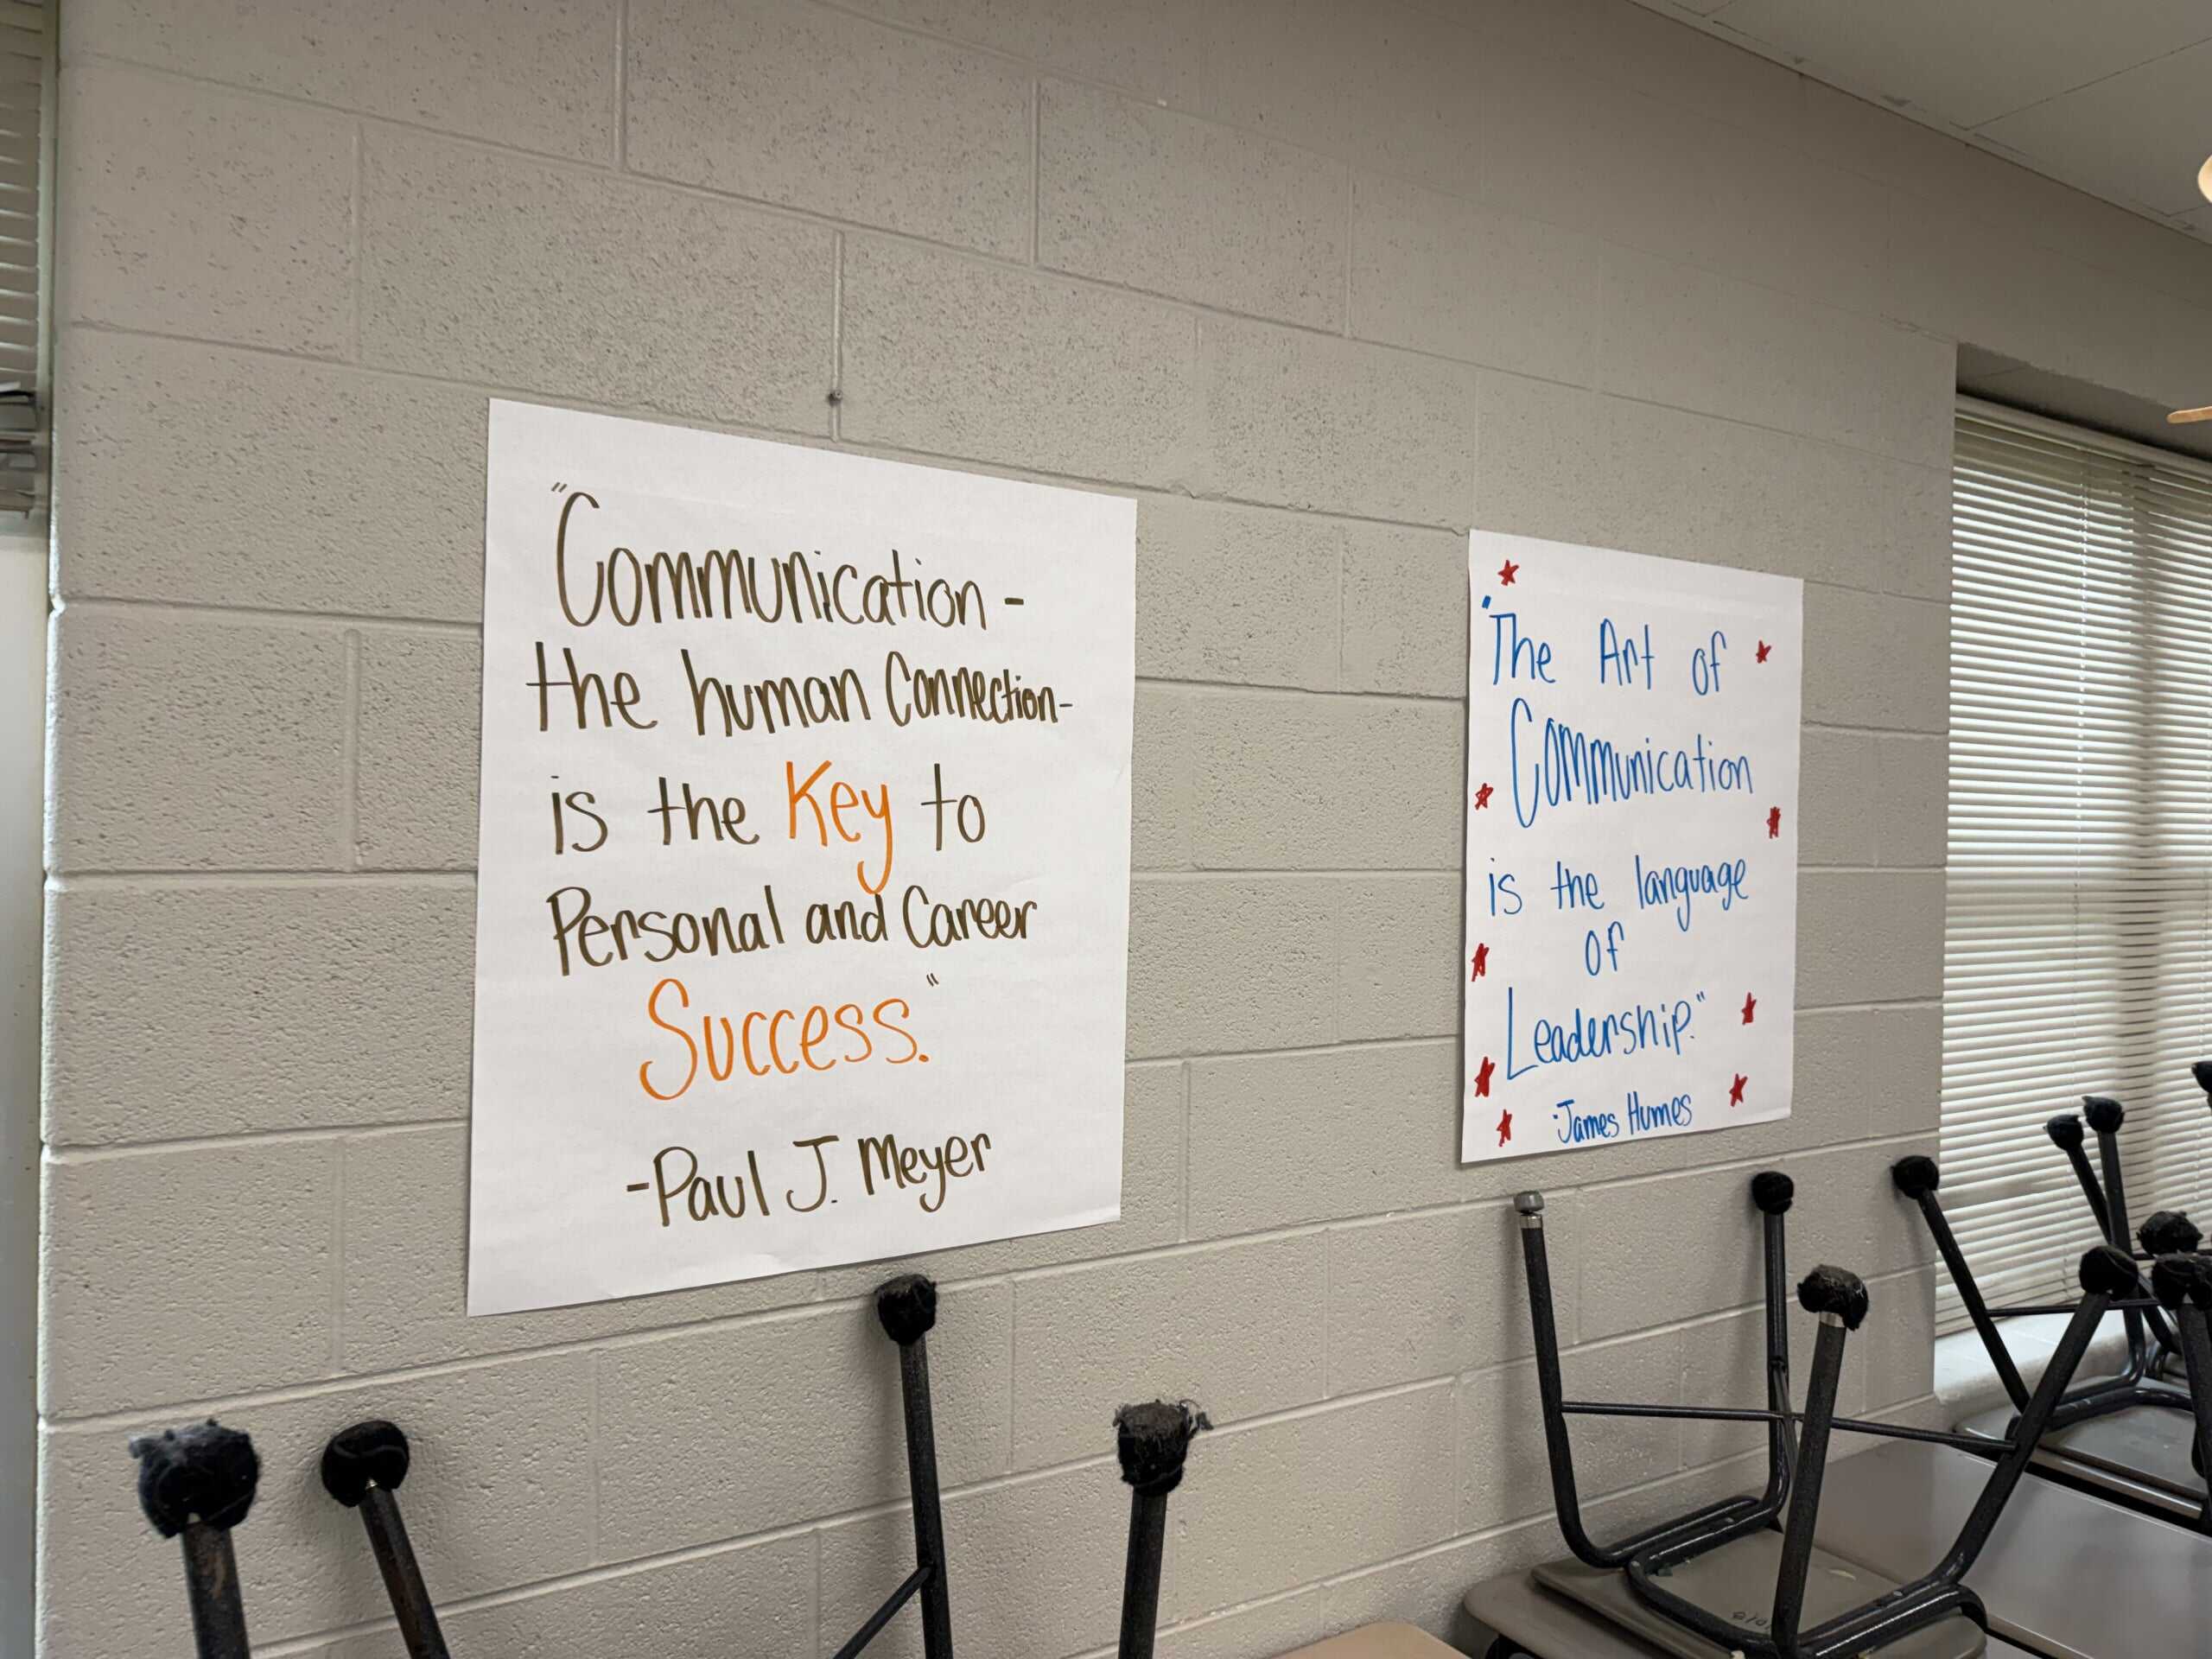 "Communication -
the human Connection-
is the Key to
Personal and Career
Success."
-Paul J. Meyer
"The Art of
Communication
is the language
of
Leadership."
-James Humes